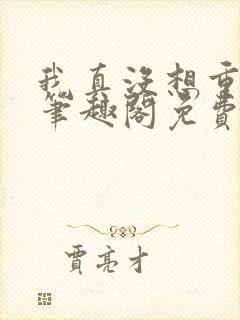 我真没想重
笔趣阁免费
贾亮才